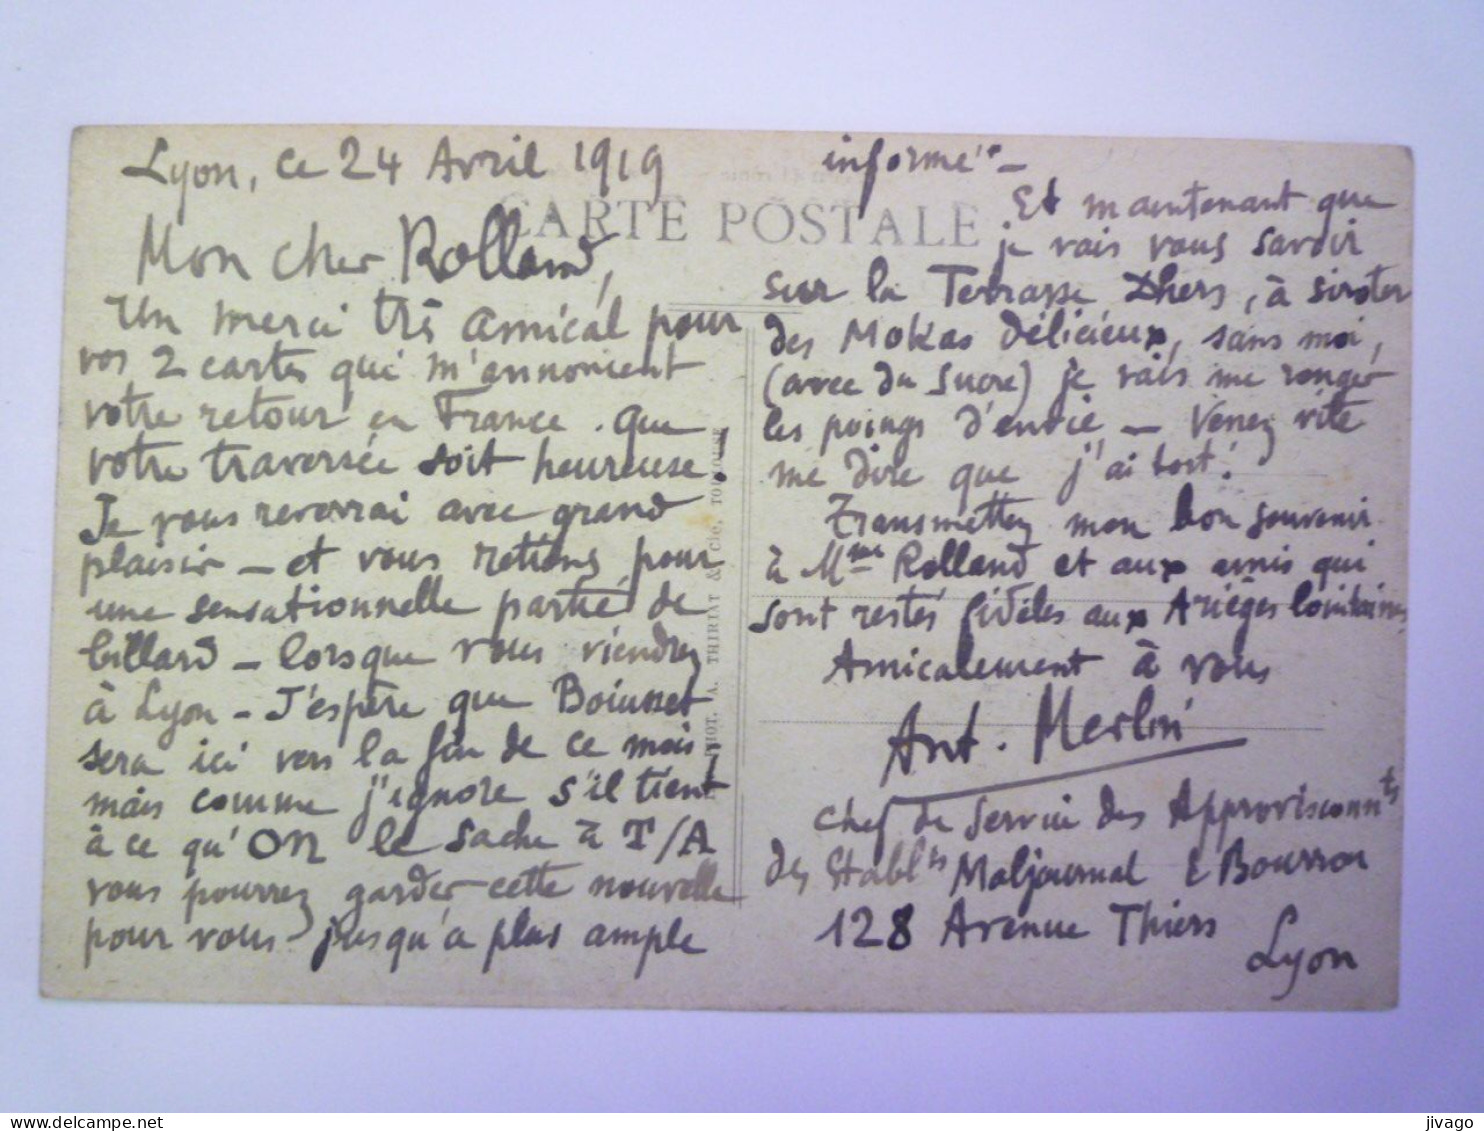 Lyon, ce 24 Avril 1919
CARTE POSTALE
Mon cher Rolland,
Un merci très amical pour
vos 2 cartes qui m'annoncent
votre retour en France. Que
votre traversée soit heureuse!
Je vous reverrai avec grand
plaisir – et vous retiens pour
une sensationnelle partie de
billard – lorsque vous viendrez
à Lyon – J'espère que
sera ici vers la fin de ce mois –
mais comme j'ignore s'il tient
à ce qu'ON le sache à T/A
vous pourrez garder cette nouvelle
pour vous jusqu'à plus ample
informé –
Et maintenant que
je vais vous savoir
sur la Terrasse, à siroter
des Mokas délicieux, sans moi,
(avec du sucre) je vais me ronger
les poings d'envie – Venez vite
me dire que j'ai tort!
Transmettez mon bon souvenir
à Mme Rolland et aux amis qui
sont restés fidèles aux Arièges lointaines
Amicalement à vous
Ant. Merlin
Chef de Service des Approvisionnts
des Etablts Maljournal & Bourron
128 Avenue Thiers
Lyon
PHOT. A. THIRIAT & Cie, TOULOUSE
jivago